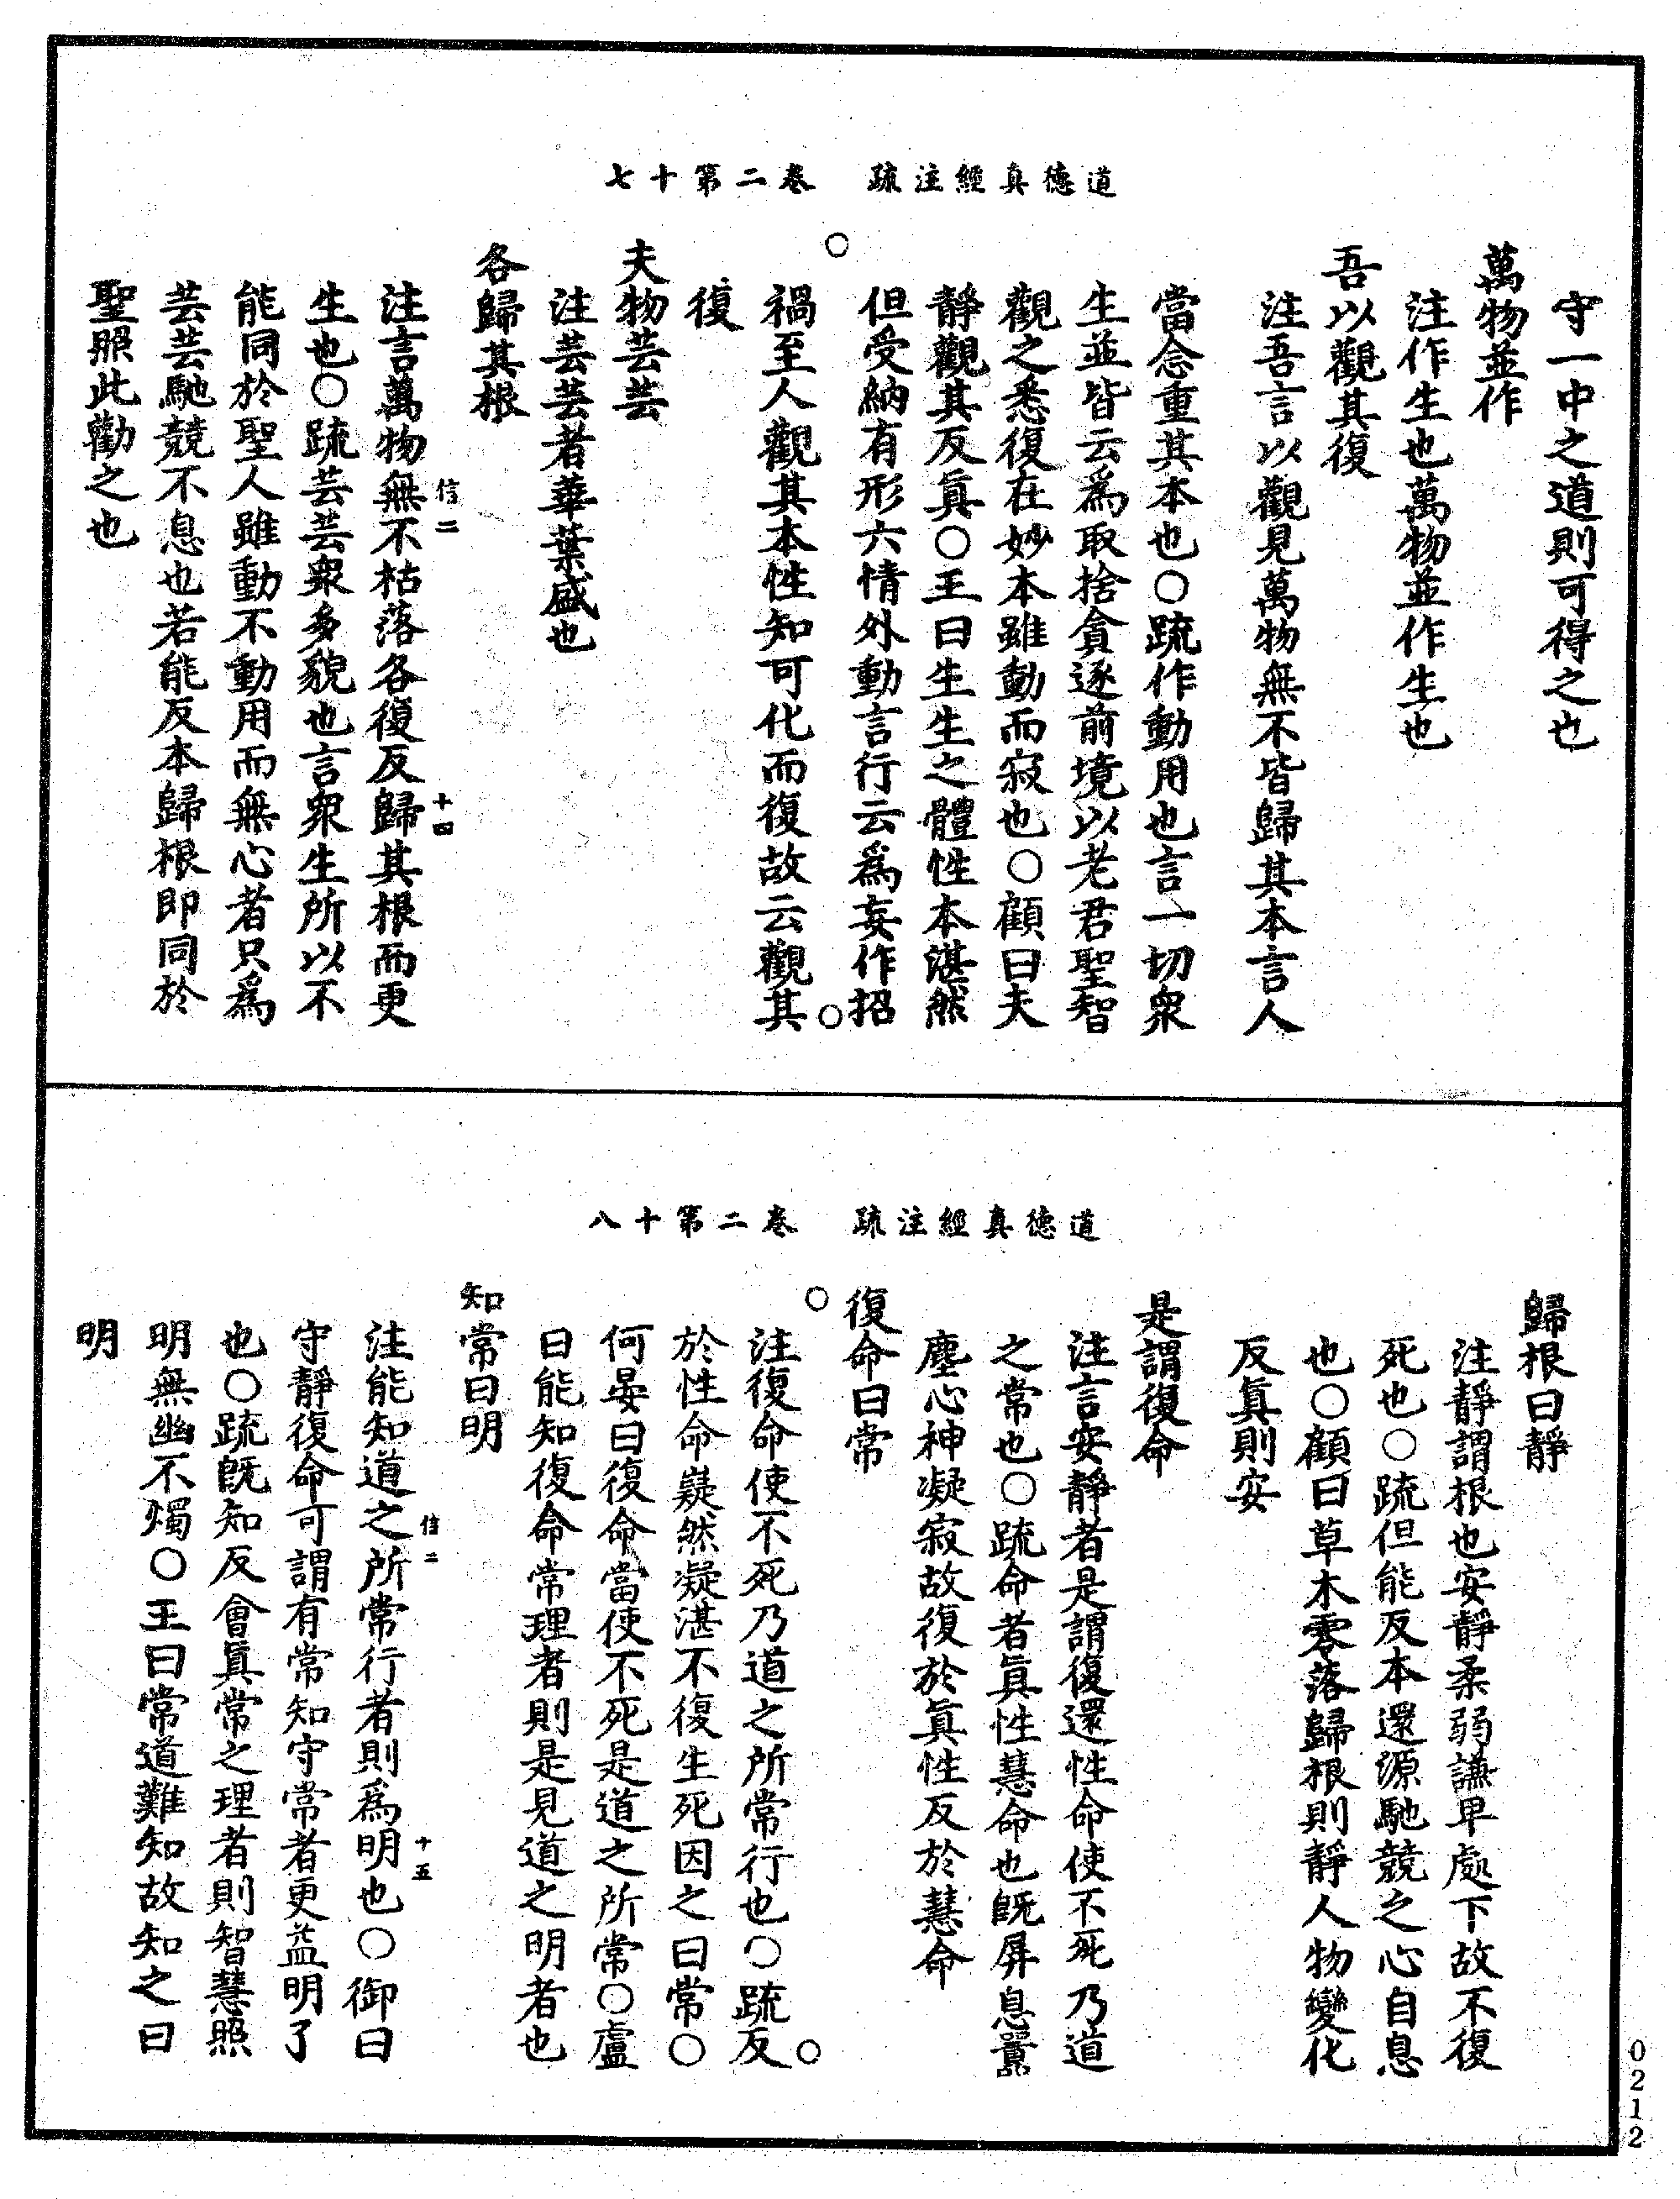 道德真經注疏　卷二第十七
守一中之道則可得之也
萬物並作
注作生也萬物並作生也
吾以觀其復
注吾言以觀見萬物無不皆歸其本言人
當念重其本也○疏作動用也言一切衆
生並皆云爲取捨貪逐前境以老君聖智
觀之悉復在妙本雖動而寂也○顧曰夫
靜觀其反眞○王曰生生之體性本湛然
但受納有形六情外動言行云爲妄作招
禍至人觀其本性知可化而復故云觀其
復
夫物芸芸
注芸芸者華葉盛也
各歸其根
注言萬物無不枯落各復反歸其根而更
信二
十四
生也○疏芸芸衆多貌也言衆生所以不
能同於聖人雖動不動用而無心者只爲
芸芸馳競不息也若能反本歸根即同於
聖照此勸之也
道德真經注疏　卷二第十八
歸根曰靜
注靜謂根也安靜柔弱謙卑處下故不復
死也○疏但能反本還源馳競之心自息
也○顧曰草木零落歸根則靜人物變化
反眞則安
是謂復命
注言安靜者是謂復還性命使不死乃道
之常也○疏命者眞性慧命也既屏息囂
塵心神凝寂故復於眞性反於慧命
復命曰常
注復命使不死乃道之所常行也○疏反
於性命嶷然凝湛不復生死因之曰常○
何晏曰復命當使不死是道之所常○盧
曰能知復命常理者則是見道之明者也
知常曰明
注能知道之所常行者則爲明也○御曰
信二
十五
守靜復命可謂有常知守常者更益明了
也○疏既知反會眞常之理者則智慧照
明無幽不燭○王曰常道難知故知之曰
明
0212